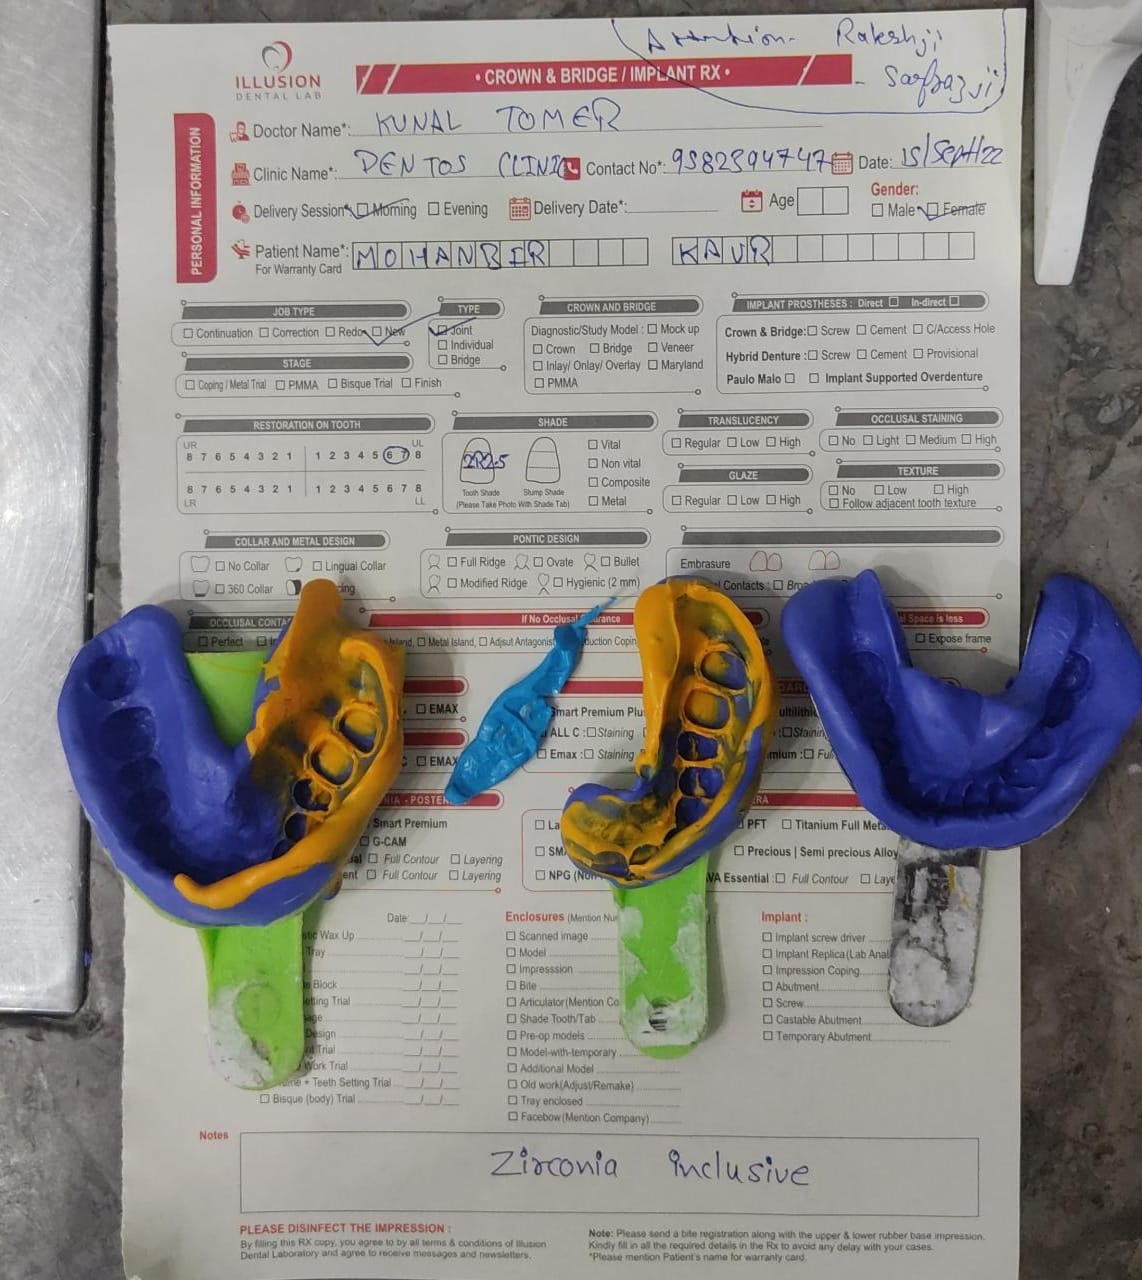 Attention- Rakeshji
- Sarfrazji
ILLUSION
DENTAL LAB
• CROWN & BRIDGE / IMPLANT RX •
PERSONAL INFORMATION
Doctor Name*: KUNAL TOMER
Clinic Name*: DENTOS CLINIC Contact No*: 9582594747 Date: 15/Sept/22
Delivery Session* ☐ Morning ☐ Evening Delivery Date*: Age Gender:
☐ Male ☐ Female
Patient Name*: MOHANBER KAUR
For Warranty Card
JOB TYPE
☐ Continuation ☐ Correction ☐ Redo ☐ New
STAGE
☐ Coping / Metal Trial ☐ PMMA ☐ Bisque Trial ☐ Finish
TYPE
☐ Joint
☐ Individual
☐ Bridge
CROWN AND BRIDGE
Diagnostic/Study Model : ☐ Mock up
☐ Crown ☐ Bridge ☐ Veneer
☐ Inlay/ Onlay/ Overlay ☐ Maryland
☐ PMMA
IMPLANT PROSTHESES : Direct ☐ In-direct ☐
Crown & Bridge: ☐ Screw ☐ Cement ☐ C/Access Hole
Hybrid Denture : ☐ Screw ☐ Cement ☐ Provisional
Paulo Malo ☐ ☐ Implant Supported Overdenture
RESTORATION ON TOOTH
UR UL
8 7 6 5 4 3 2 1 1 2 3 4 5 6 7 8
8 7 6 5 4 3 2 1 1 2 3 4 5 6 7 8
LR LL
SHADE
2R2.5
Tooth Shade Stump Shade
(Please Take Photo With Shade Tab)
☐ Vital
☐ Non vital
☐ Composite
☐ Metal
TRANSLUCENCY
☐ Regular ☐ Low ☐ High
GLAZE
☐ Regular ☐ Low ☐ High
OCCLUSAL STAINING
☐ No ☐ Light ☐ Medium ☐ High
TEXTURE
☐ No ☐ Low ☐ High
☐ Follow adjacent tooth texture
COLLAR AND METAL DESIGN
☐ No Collar ☐ Lingual Collar
☐ 360 Collar
PONTIC DESIGN
☐ Full Ridge ☐ Ovate ☐ Bullet
☐ Modified Ridge ☐ Hygienic (2 mm)
Embrasure
Contacts :
OCCLUSAL
If No Occlusal
Space is less
☐ Perfect
☐ Metal Island, ☐ Adjsut
☐ Expose frame
☐ EMAX
Smart Premium
ALL C : ☐ Staining
☐ EMAX
Emax : ☐ Staining
Smart Premium
G-CAM
☐ Full Contour ☐ Layering
☐ Full Contour ☐ Layering
PFT ☐ Titanium Full
☐ Precious | Semi precious Alloy
☐ NPG
Essential : ☐ Full Contour
Date:__/__/__
Wax Up
Tray
Block
Setting Trial
Design
Trial
Work Trial
+ Teeth Setting Trial
☐ Bisque (body) Trial
Enclosures
☐ Scanned image
☐ Model
☐ Impresssion
☐ Bite
☐ Articulator(Mention
☐ Shade Tooth/Tab
☐ Pre-op models
☐ Model-with-temporary
☐ Additional Model
☐ Old work(Adjust/Remake)
☐ Tray enclosed
☐ Facebow(Mention Company)
Implant :
☐ Implant screw driver
☐ Implant Replica(Lab
☐ Impression Coping
☐ Abutment
☐ Screw
☐ Castable Abutment
☐ Temporary Abutment
Notes
Zirconia inclusive
PLEASE DISINFECT THE IMPRESSION :
By filling this RX copy, you agree to by all terms & conditions of Illusion
Dental Laboratory and agree to receive messages and newsletters.
Note: Please send a bite registration along with the upper & lower rubber base impression.
Kindly fill in all the required details in the Rx to avoid any delay with your cases.
*Please mention Patient's name for warranty card.